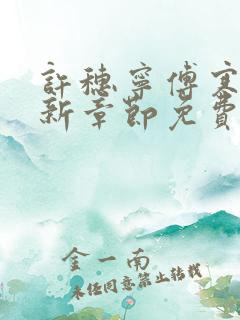 許穗寧傅寒
新章節免費
金一南
未經同意禁止轉載